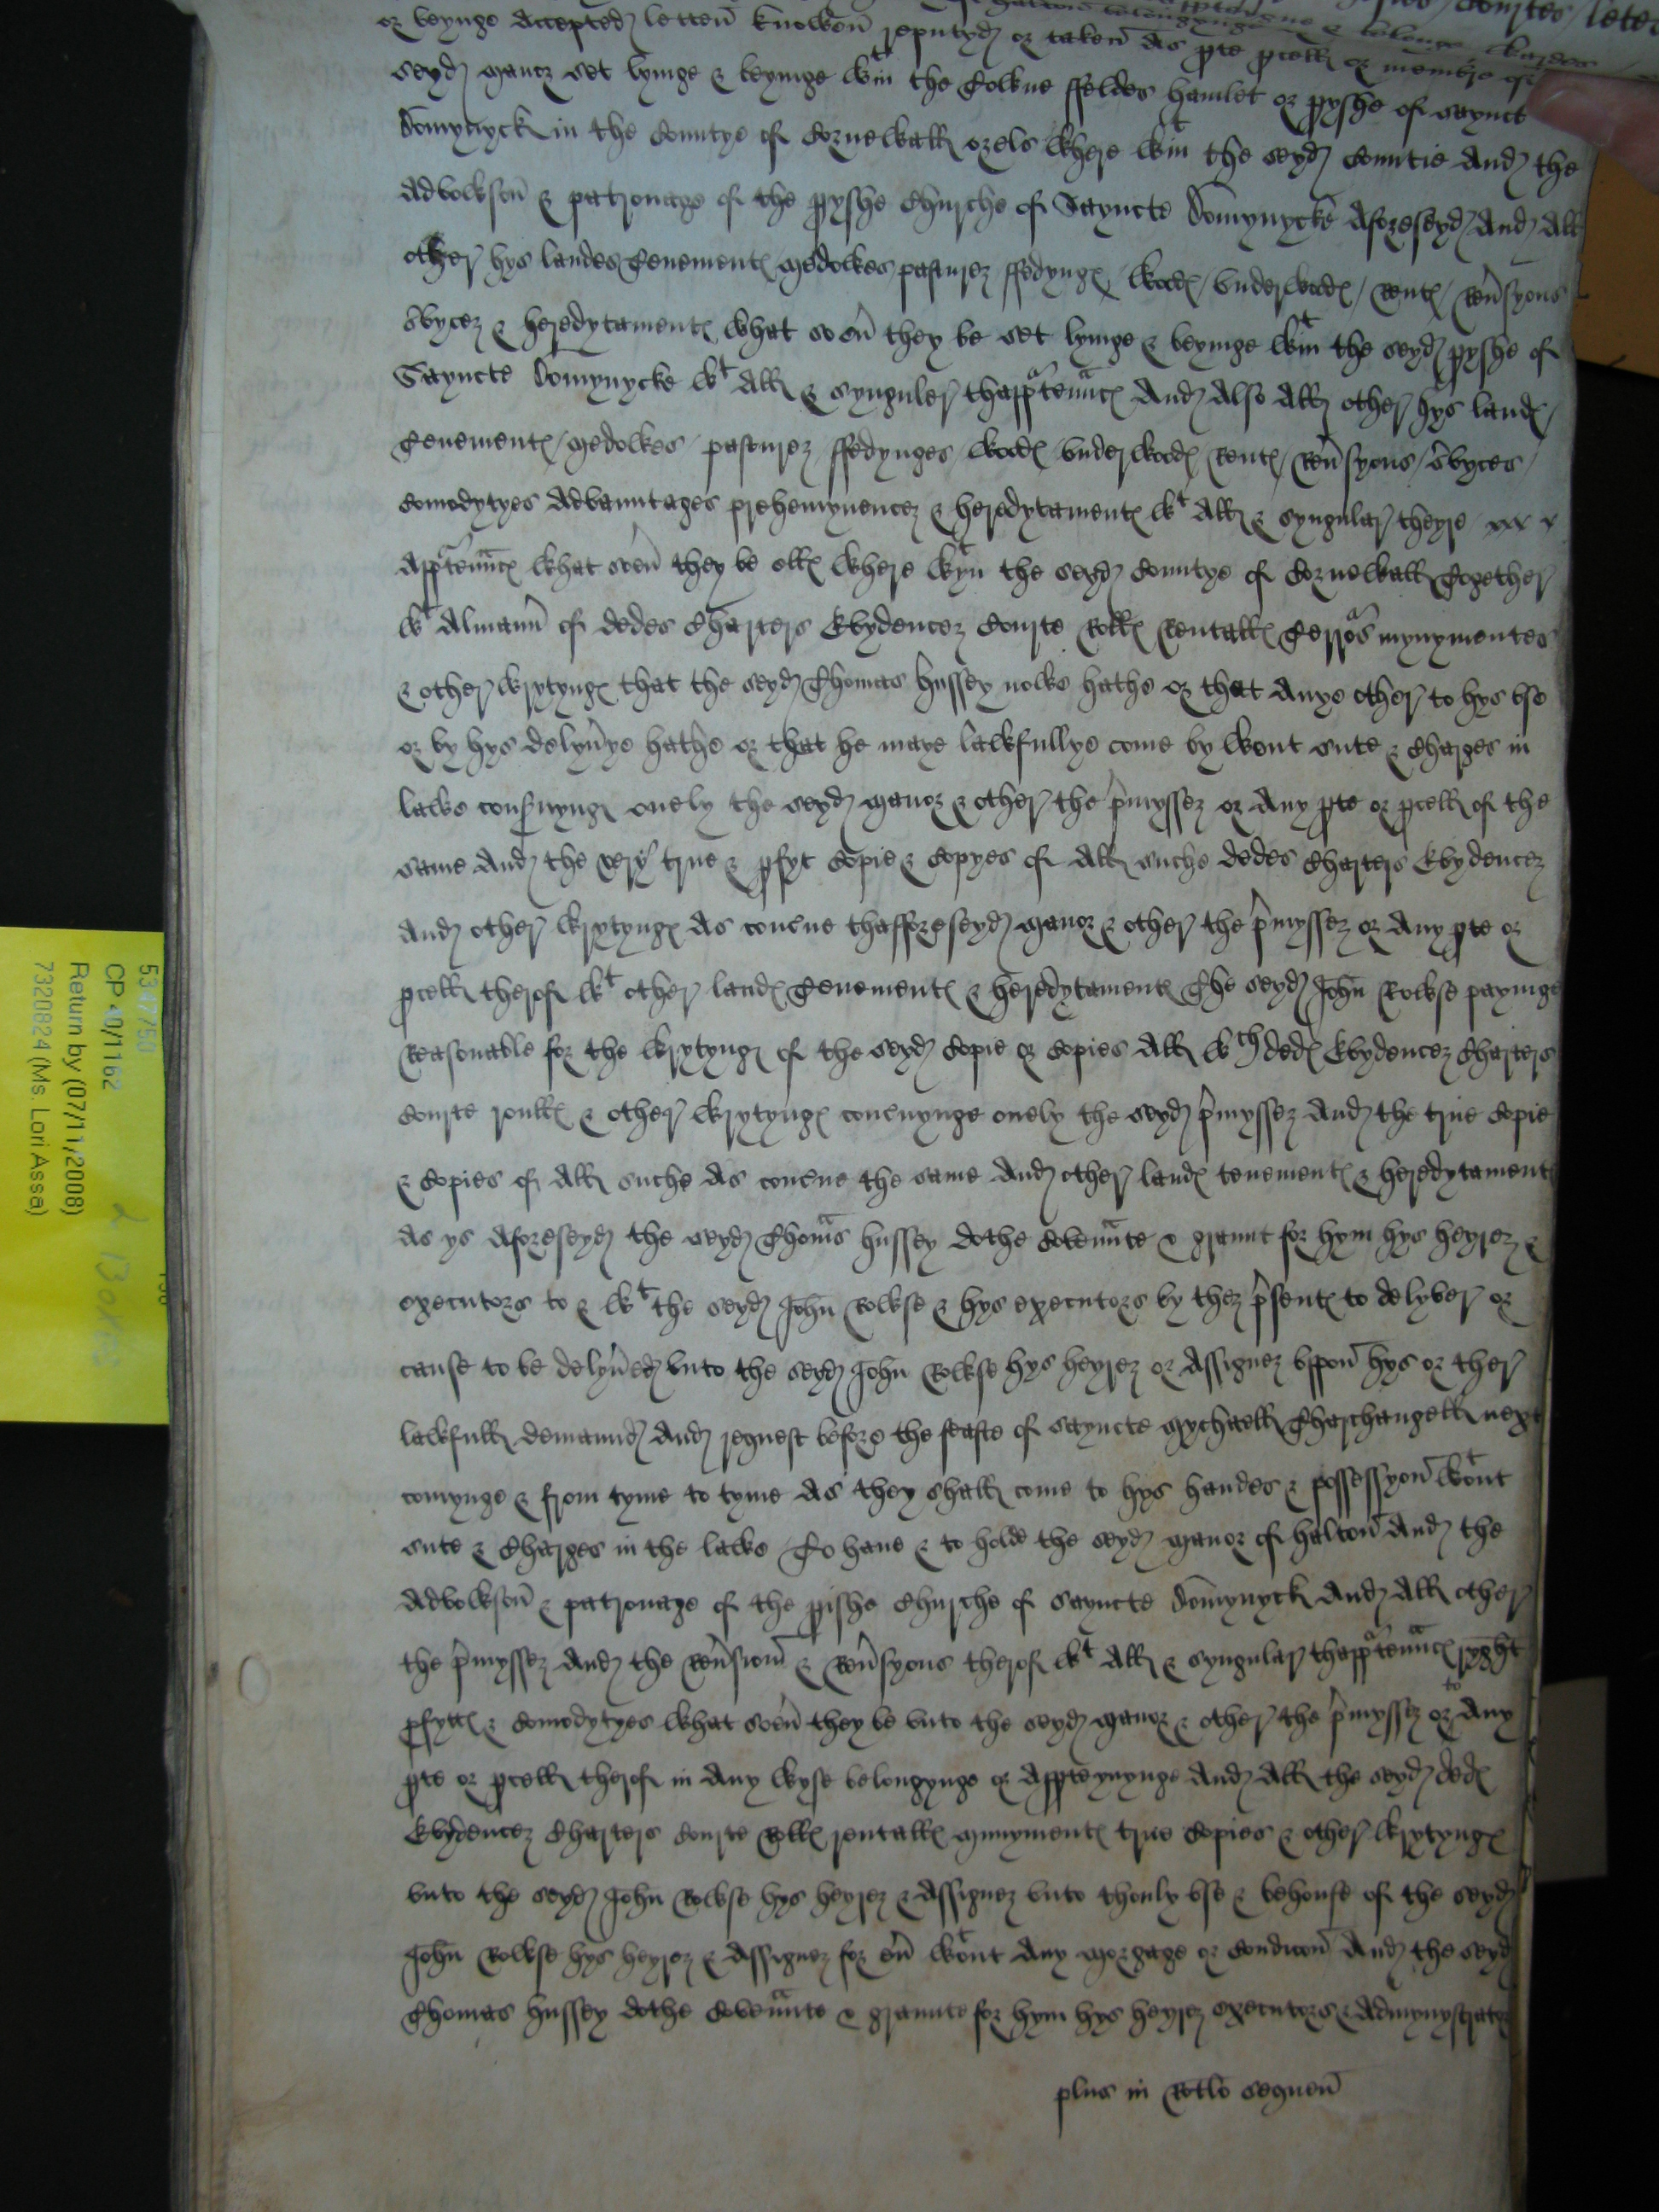 or beynge accepted letten knowen reputyd or taken as pte pcell or membre of
seyd manor set lyinge & beynge wtin the towne ffeldes hamlet or pyshe of Saynct
Domynyck in the Countye of Cornewall orels where wtin the seyd Countie And the
Advowson & patronage of the pyshe Churche of Sayncte Domynycke aforeseyd And all
other hys landes tenementes medowes pasturez ffedynges / woodes / underwoodes / rentes / reusyons
suycez & heredytamentes what soeu they be set lyinge & beynge wtin the seyd pyshe of
Sayncte Domynycke wt all & synguler thapptenances And also all other hys landes /
tenementes / medowes / pasturez / ffedynges / woodes underwoodes rentes / reusyons / suyces /
Comodytyes advauntages prehemynencez & heredytamentes wt all & syngular theyre xxx x
apptenances what soeu they be elles where wtyn the seyd Countye of Cornewall Together
wt almann of dedes Charters Evydencez Courte rolles rentalles terrors mynymentes
& other wrytynges that the seyd Thomas hussey nowe hathe or that anye other to hys use
or by hys delyuye hathe or that he maye lawfullye come by wtout sute & Charges in
lawe concnynge onely the seyd manor & other the pmyssez or any pte or pcell of the
same And the very true & pfyt Copie & Copyes of all suche dedes Charters Evydencez
And other wrytynges as concne thafforeseyd manor & other the pmyssez or any pte or
pcell therof wt other landes tenementes & heredytamentes The seyd John Rowse payinge
Reasonable for the wrytynge of the seyd Copie or Copies All wch dedes Evydencez Charters
Courte roulles & other wrytynges concnynge onely the seyd pmyssez And the true Copie
& Copies of all suche as concne the same And other landes tenementes & heredytamentes
as ys aforeseyd the seyd Thomas hussey dothe Covenante & graunt for hym hys heyrez &
executors to & wt the seyd John Rowse & hys executors by thez psentes to delyver or
cause to be delyued unto the seyd John Rowse hys heyrez or assignez uppon hys or ther
lawfull demaund And request before the feaste of Sayncte Mychaell Tharchangell next
comynge & from tyme to tyme as they shall come to hys handes & possessyon wtout
sute & Charges in the lawe To haue & to holde the seyd manor of halton And the
Advowson & patronage of the pishe Churche of Sayncte Domynyck And all other
the pmyssez And the reusion & reusyons therof wt all & syngular thapptenances ryght
pfyttes & Comodytyes what soeu they be unto the seyd manor & other the pmyssez or to any
pte or pcell therof in any wyse belongynge or appteynynge And all the seyd dedes
Evydencez Charters Courte rolles rentalles munymentes true Copies & other wrytynges
unto the seyd John Rowse hys heyrez & assignez unto thonly use & behoufe of the seyd
John Rowse hys heyrez & assignez for eu wtout any morgage or Condicon And the seyd
Thomas hussey dothe Covenante & graunte for hym hys heyrez executors & admynystrators
plus in Rotlo sequen
5347750
CP 40/1162
Return by (07/11/2008)
7320824 (Ms. Lori Assa)